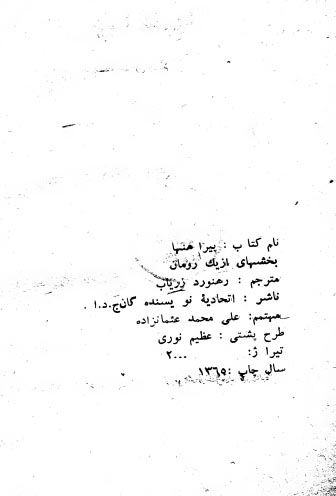 نام کتاب : پیراهنها
بخشهای ازیک رومان
مترجم : رهنورد زریاب
ناشر : اتحادیهٔ نویسنده گان ج.د.ا
مهتمم: علی محمد عثمانزاده
طرح پشتی : عظیم نوری
تیراژ: ۲۰۰۰
سال چاپ : ۱۳۶۵